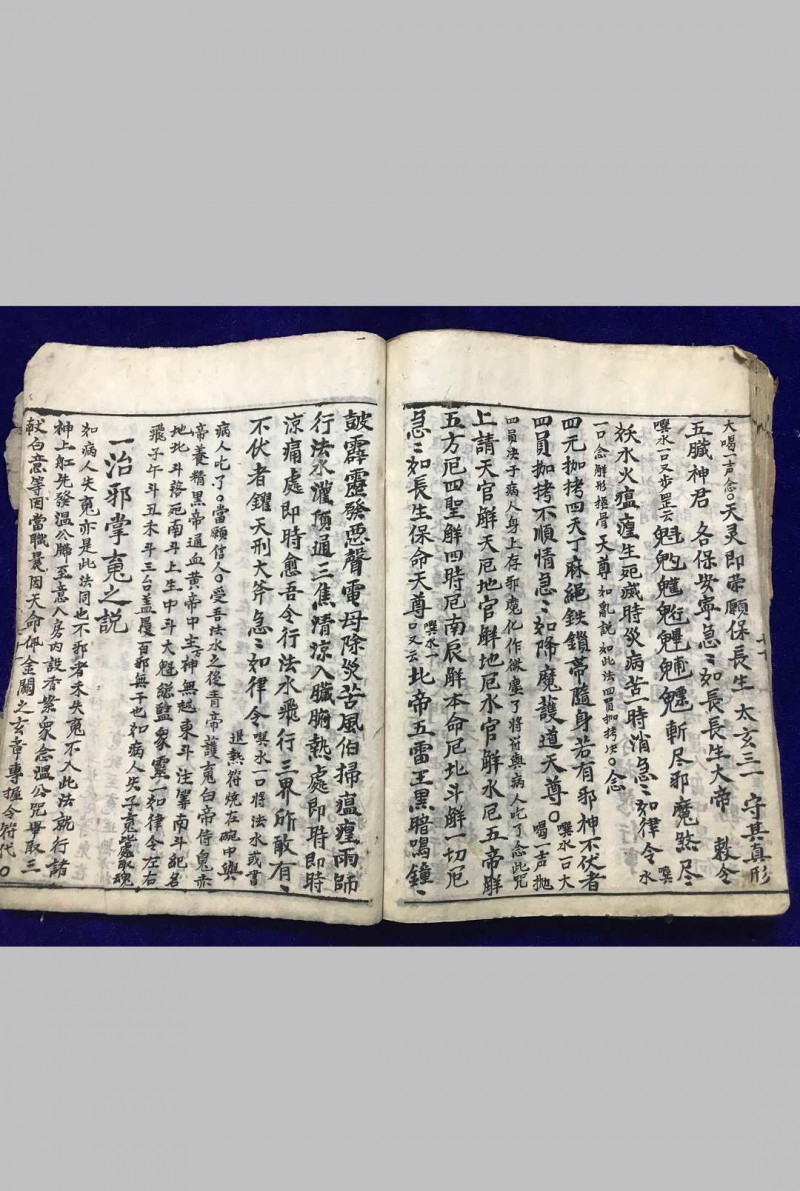 大喝一声念○天灵即荣願保長生 太玄三一 守其真形
五臓神君 各保安寧急〻如長長生大帝 敕令
噀水一口又步罡云魁𩲃魓魋魒魓魒斬尽邪魔煞尽 噀
妖水火瘟㾮生死滅時災病苦一時消急〻如律令 水
一口念雕形極骨 天尊如乱説如此法四員拷○念
四元枷拷四天丁麻縄鉄鎖帯隨身若有邪神不伏者
四員枷拷不順情急〻如降魔護道天尊○噀水一口大喝一声抛
四員决子病人身上存邪魔化作微塵了將符與病人吃了念此咒
上請天官解天厄地官解地厄水官解水厄五帝解
五方厄四聖解四時厄南辰解本命厄北斗解一切厄
急〻如長生保命天尊噀水一口又云北帝五雷王黑暗喝鐘〻
皷霹靂發惡聲電母除災苦風伯掃瘟㾮雨師
行法水灌頂通三焦清涼入臓腑熱處即時即時
涼痛處即時愈吾令行法水飛行三界所敢有〻
不伏者钁天刑大斧急〻如律令噀水一口將法水或書退熱符燒在碗中與
病人吃了○當願信人○受吾法水之後青帝護䰟白帝侍鬼赤
帝養精黑帝通血黄帝中主神無越東斗注筭南斗記名
地北斗落死南斗上生中斗大魁總監衆靈一如律令左右
飛子午斗丑未斗三台盖覆百邪無干也如病人失了䰟此處取魂
一治邪掌䰟之説
如病人失䰟亦是此法同也不邪者未失䰟不入此法就行諸
神上缸先發温公牒至意入房内設香案衆念温公咒畢取三
献白意等因當職晨因天命佩金闕之玄章專握令符代○